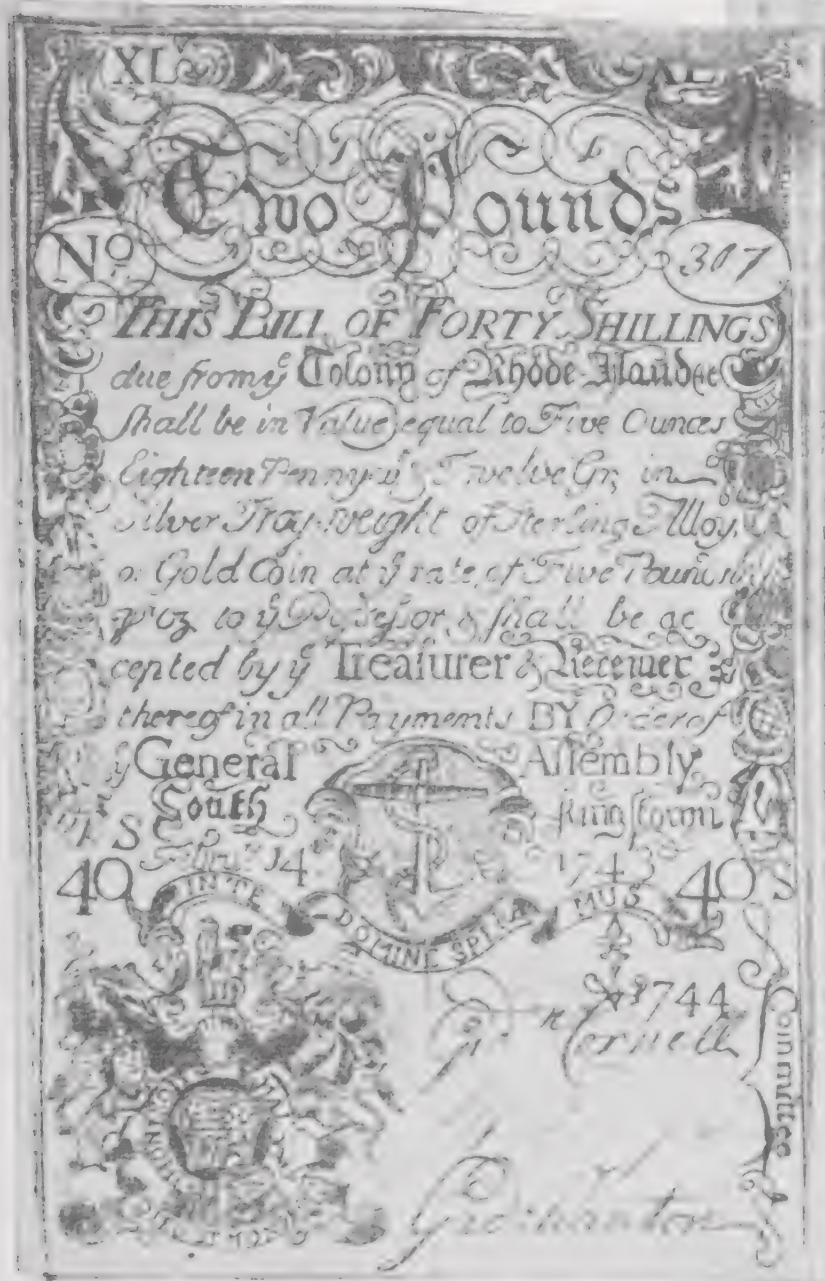 XL XL
Two Pounds
No 307
THIS BILL OF FORTY SHILLINGS
due from ye Colony of Rhode Island &c
shall be in Value equal to Five Ounces
Eighteen Pennywt & Twelve Gr; in
Silver Troy weight of Sterling Alloy,
or Gold Coin at ye rate of Five Pounds
pr oz to ye Possessor & shall be ac
cepted by ye Treasurer & Receiver
thereof in all Payments BY Order of
ye General Assembly
South Kingstown
S
14 1743
40 40 S
IN TE DOMINE SPERAMUS
1744
Cornell
Committee